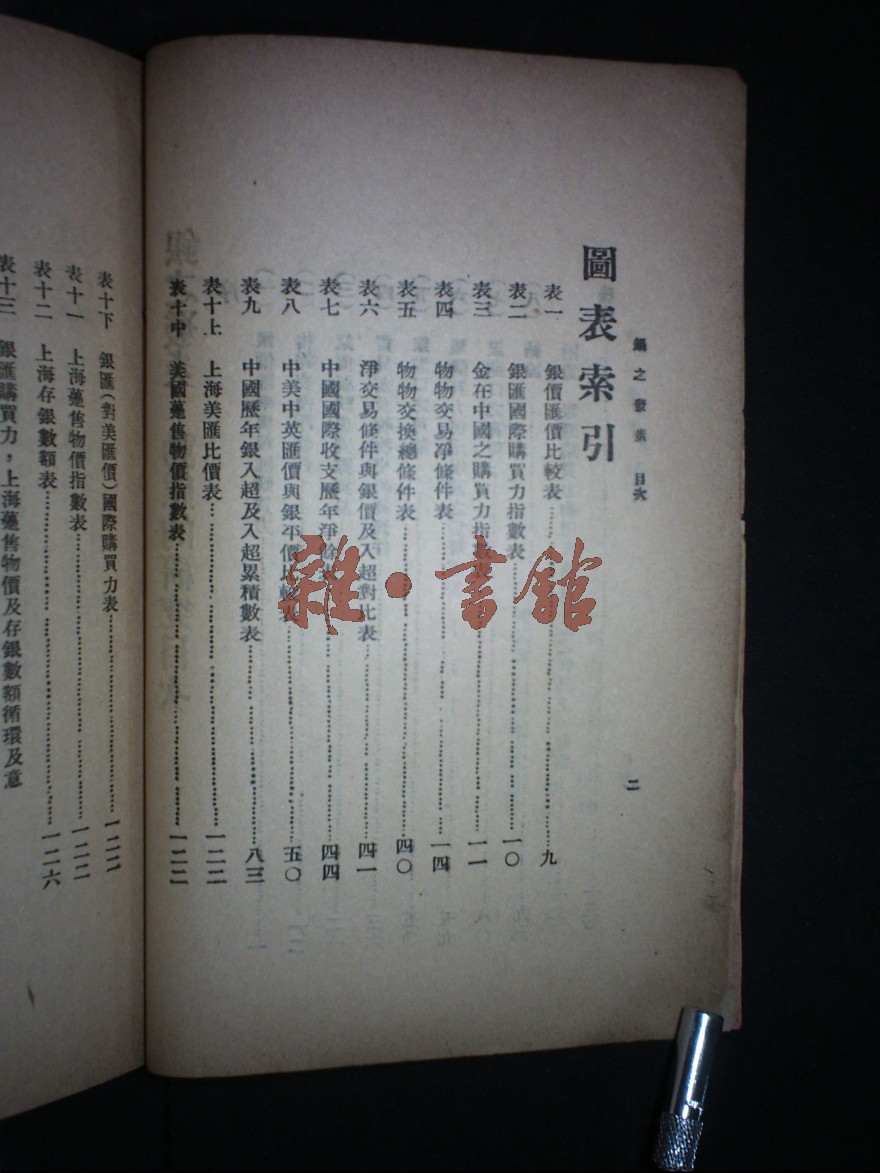 銀之發炁 目次
二
圖表索引
表一 銀價匯價比較表 九
表二 銀匯國際購買力指數表 一〇
表三 金在中國之購買力指數表 一一
表四 物物交易净條件表 一四
表五 物物交換總條件表 四〇
表六 淨交易條件與銀價及入超對比表 四一
表七 中國國際收支歷年淨餘表 四四
表八 中美中英匯價與銀平價比較表 五〇
表九 中國歷年銀入超及入超累積數表 八三
表十上 上海美匯比價表 一二二
表十中 美國躉售物價指數表 一二二
表十下 銀匯(對美匯價)國際購買力表 一二二
表十一 上海躉售物價指數表 一二二
表十二 上海存銀數額表 一二六
表十三 銀匯購買力,上海躉售物價及存銀數額循環及意
雜·書館